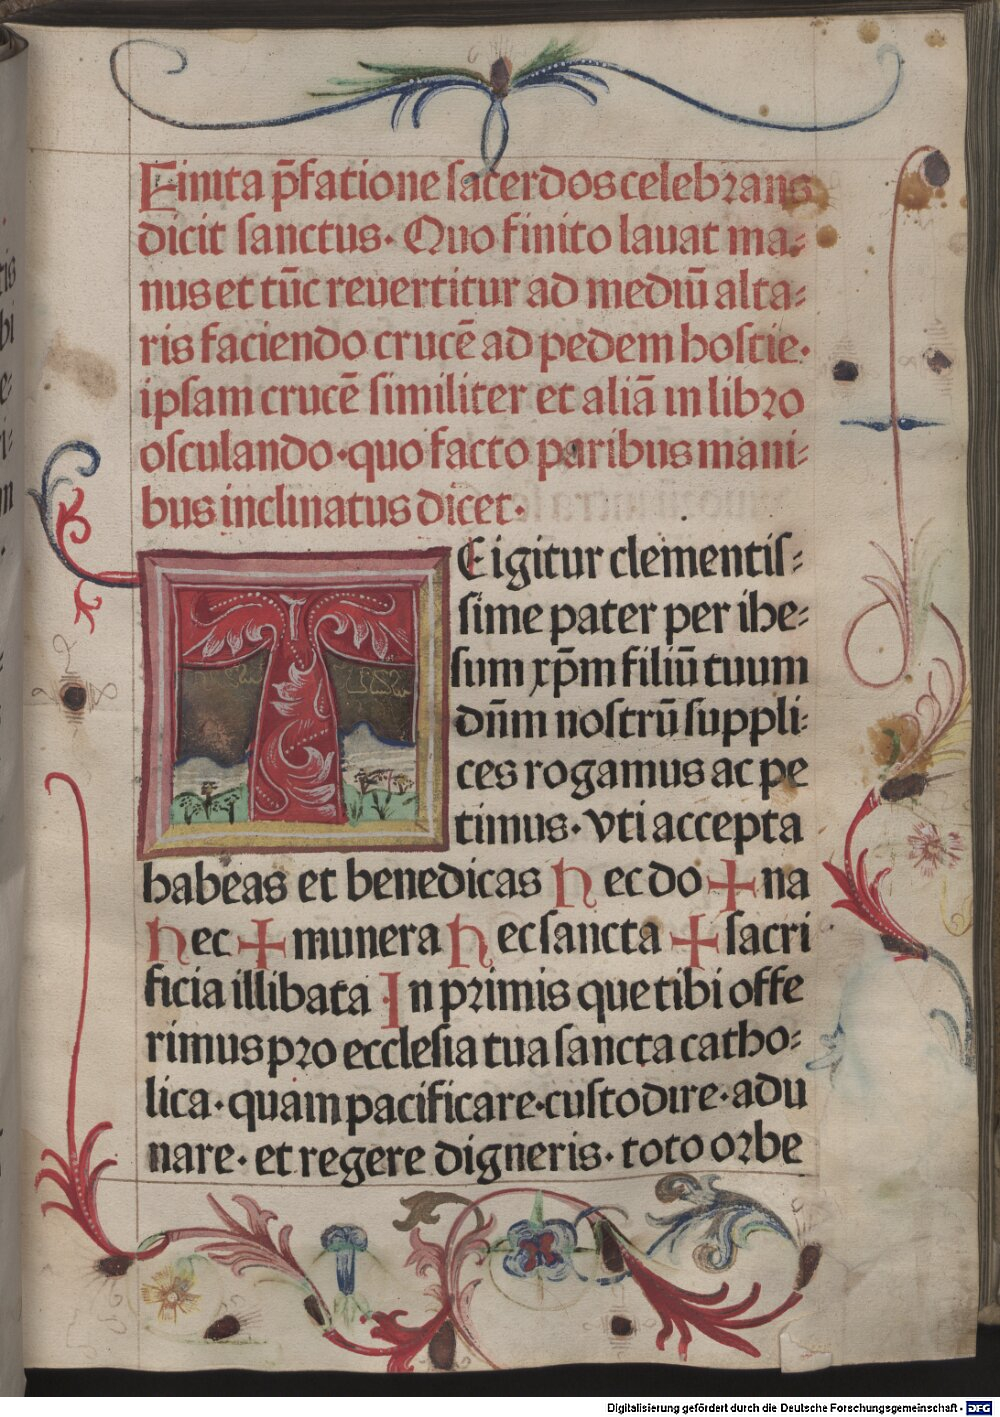 Finita p̄fatione sacerdos celebrans
dicit sanctus. Quo finito lauat ma-
nus et tūc reuertitur ad mediū alta-
ris faciendo crucē ad pedem hostie.
ipsam crucē similiter et aliā in libro
osculando. quo facto paribus mani-
bus inclinatus dicet.
TE igitur clementis-
sime pater per ihe-
sum xp̄m filiū tuum
dn̄m nostrū suppli-
ces rogamus ac pe
timus. vti accepta
habeas et benedicas hec do + na
hec + munera hec sancta + sacri
ficia illibata In primis que tibi offe
rimus pro ecclesia tua sancta catho-
lica. quam pacificare. custodire. adu
nare. et regere digneris. toto orbe
Digitalisierung gefördert durch die Deutsche Forschungsgemeinschaft - DFG